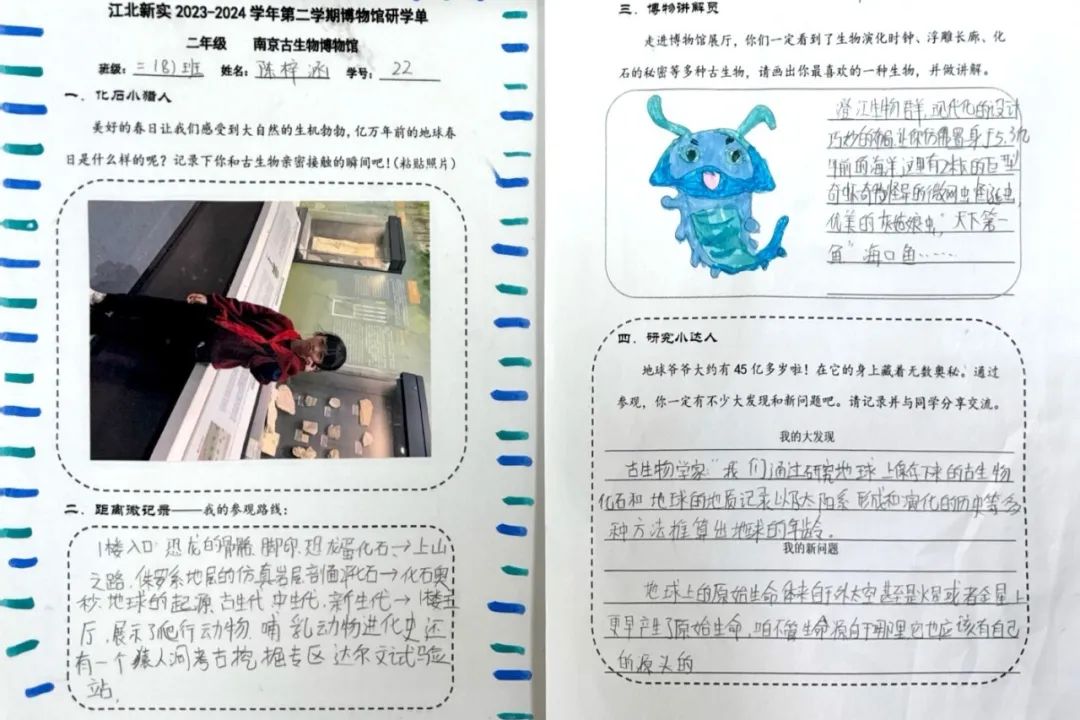 江北新实2023-2024学年第二学期博物馆研学单
二年级 南京古生物博物馆
班级：二(8)班 姓名：陈梓涵 学号：22
一、化石小猎人
美好的春日让我们感受到大自然的生机勃勃，亿万年前的地球春
日是什么样的呢？记录下你和古生物亲密接触的瞬间吧！(粘贴照片)
二、距离微记录——我的参观路线：
1楼入口 恐龙的骨骼 脚印 恐龙蛋化石→上山
之路 侏罗系地层的仿真岩层剖面 化石→化石奥
秘 地球的起源 古生代 中生代 新生代→1楼主
厅 展示了爬行动物 哺乳动物进化史 还
有一个猿人洞考古挖掘专区 达尔文试验
站，
三、博物讲解员
走进博物馆展厅，你们一定看到了生物演化时钟、浮雕长廊、化
石的秘密等多种古生物，请画出你最喜欢的一种生物，并做讲解。
澄江生物群，现代化的设计
巧妙的布局 让你仿佛置身于5.3亿
年前的海洋 这里有2米的巨型
奇虾 奇形怪异的微网虫 怪诞虫，
优美的灰姑娘虫，"天下第一
鱼"海口鱼……
四、研究小达人
地球爷爷大约有45亿多岁啦！在它的身上藏着无数奥秘。通过
参观，你一定有不少大发现和新问题吧。请记录并与同学分享交流。
我的大发现
古生物学家："我们通过研究地球上保存下来的古生物
化石和地球的地质记录以及太阳系形成和演化的历史等多
种方法推算出地球的年龄。
我的新问题
地球上的原始生命体来自于外太空 甚至是火星或者金星上
更早产生了原始生命，咱不管生命源自于哪里它也应该有自己
的源头的